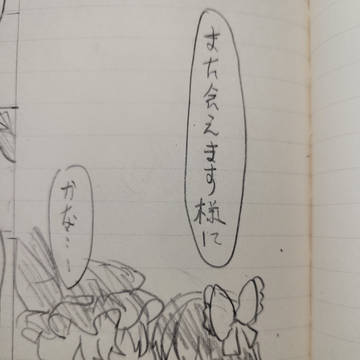 また会えます様に
かな…